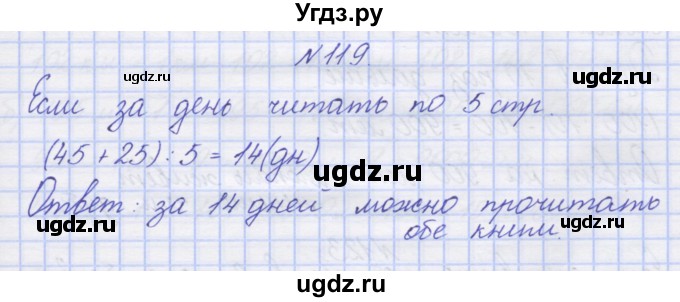 Угдз.ру
№119.
Если за день читать по 5 стр.
(45 + 25) : 5 = 14(дн)
Ответ: за 14 дней можно прочитать
обе книги.
ugdz.ru
ugdz.ru
ugdz.ru
ugdz.ru
ugdz.ru
ugdz.ru
ugdz.ru
ugdz.ru